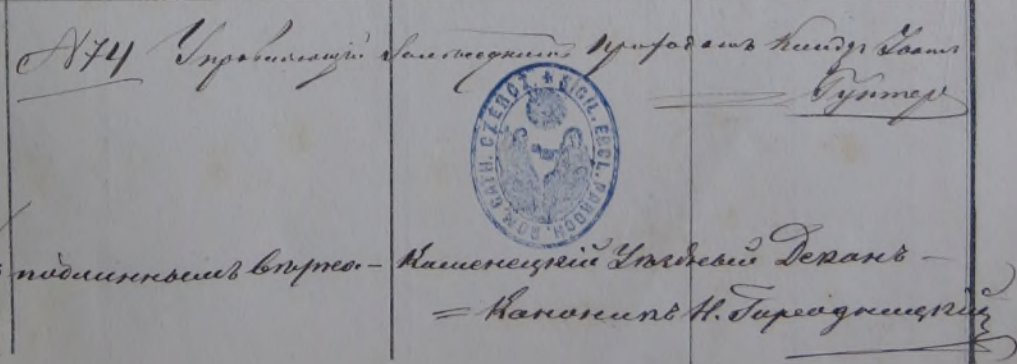 №74 Управляющій приходомъ Ксендзъ Іванъ
Гунтеръ
SIGIL. ECCL. PAROCH. ROM. CATH. CZEROZ.
подлиннымъ вѣрно. – Каменецкій Уѣздный Деканъ –
= Каноникъ Н.